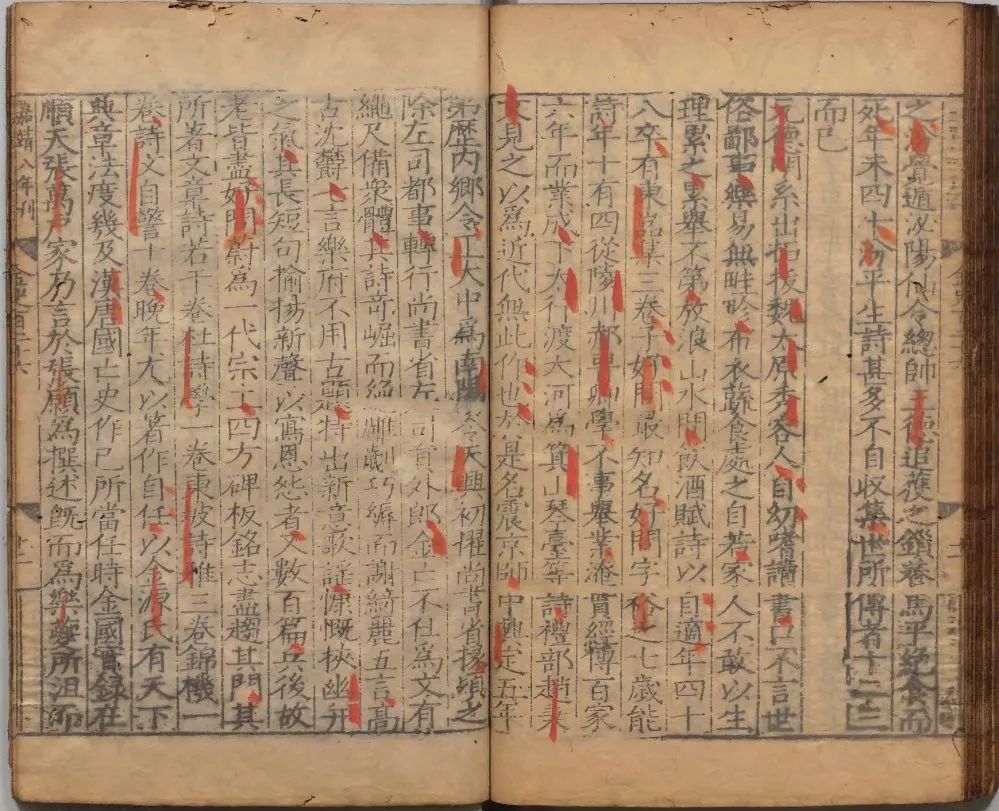 之汾覺遁泌陽仙令總帥王德追獲之鎖養馬平絕食而
死年未四十汾平生詩甚多不自收集世所傳者十二三
而已
元德明系出拓拔魏太原秀容人自幼嗜讀書口不言世
俗鄙事樂易無畦畛布衣蔬食處之自若家人不敢以生
理累之累舉不第放浪山水間飲酒賦詩以自適年四十
八卒有東嵓集三卷子好問最知名好問字裕之七歲能
詩年十有四從陵川郝晉卿學不事舉業淹貫經傳百家
六年而業成下太行渡大河為箕山琴臺等詩禮部趙秉
文見之以為近代無此作也於是名震京師中興定五年
第歷內鄉令正大中為南陽令天興初擢尚書省掾頃之
除左司都事轉行尚書省左司員外郎金亡不仕為文有
繩尺備衆體其詩奇崛而絕雕劌巧縟而謝綺麗五言高
古沈鬱七言樂府不用古題特出新意歌謠慷慨挾幽并
之氣其長短句揄揚新聲以寫恩怨者又數百篇兵後故
老皆盡好問蔚為一代宗工四方碑板銘志盡趨其門其
所著文章詩若干卷杜詩學一卷東坡詩雅三卷錦機一
卷詩文自警十卷晚年尤以著作自任以金源氏有天下
典章法度幾及漢唐國亡史作已所當任時金國實錄在
順天張萬戶家乃言於張願為撰述既而為樂夔所沮而
嘉靖八年刊
金史百二十六